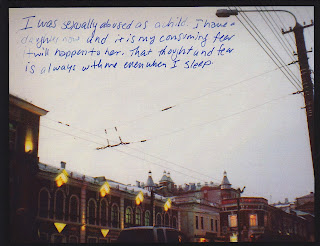 I was sexually abused as a child. I have a
daughter now and it is my consuming fear
it will happen to her. That thought and fear
is always with me even when I sleep.